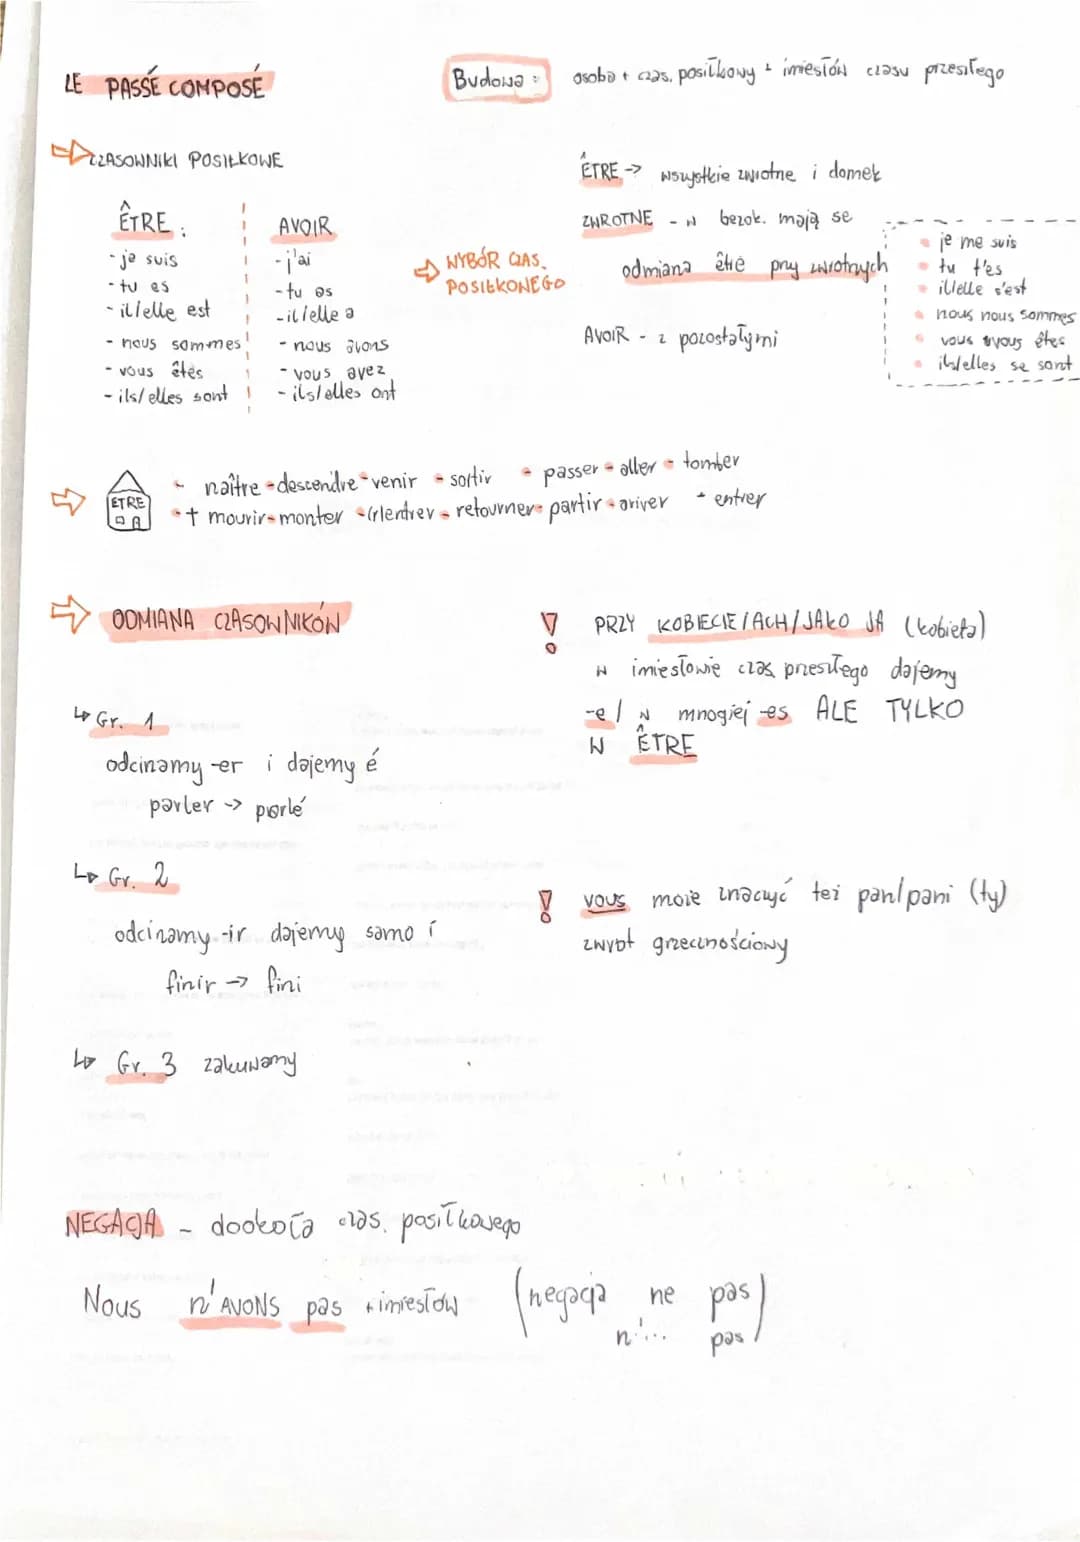 LE PASSÉ COMPOSÉ
Budowa: osoba + czas. posiłkowy + imiesłów czasu przeszłego
CZASOWNIKI POSIŁKOWE
ÊTRE:
- je suis
- tu es
- il/elle est
- nous sommes
- vous êtes
- ils/elles sont
AVOIR
- j'ai
- tu as
- il/elle a
- nous avons
- vous avez
- ils/elles ont
WYBÓR CZAS.
POSIŁKONEGO
ÊTRE -> wszystkie zwrotne i domek
ZWROTNE - w bezok. mają se
odmiana être przy zwrotnych
AVOIR - z pozostałymi
je me suis
tu t'es
il/elle s'est
nous nous sommes
vous vous êtes
ils/elles se sont
ETRE
- naître - descendre - venir - sortir - passer - aller - tomber
† mourir - monter - (r)entrer - retourner - partir - ariver - entrer
ODMIANA CZASOWNIKÓW
Gr. 1
odcinamy -er i dajemy é
parler -> parlé
Gr. 2
odcinamy -ir dajemy samo i
finir -> fini
Gr. 3 zakuwamy
! PRZY KOBIECIE/ACH/JAKO JA (kobieta)
w imiesłowie czas. przeszłego dajemy
-e / w mnogiej -es ALE TYLKO
W ÊTRE
! vous może znaczyć też pan/pani (ty)
zwrot grzecznościowy
NEGACJA - dookoła czas. posiłkowego
Nous n'AVONS pas + imiesłów (negacja ne pas)
n'... pas